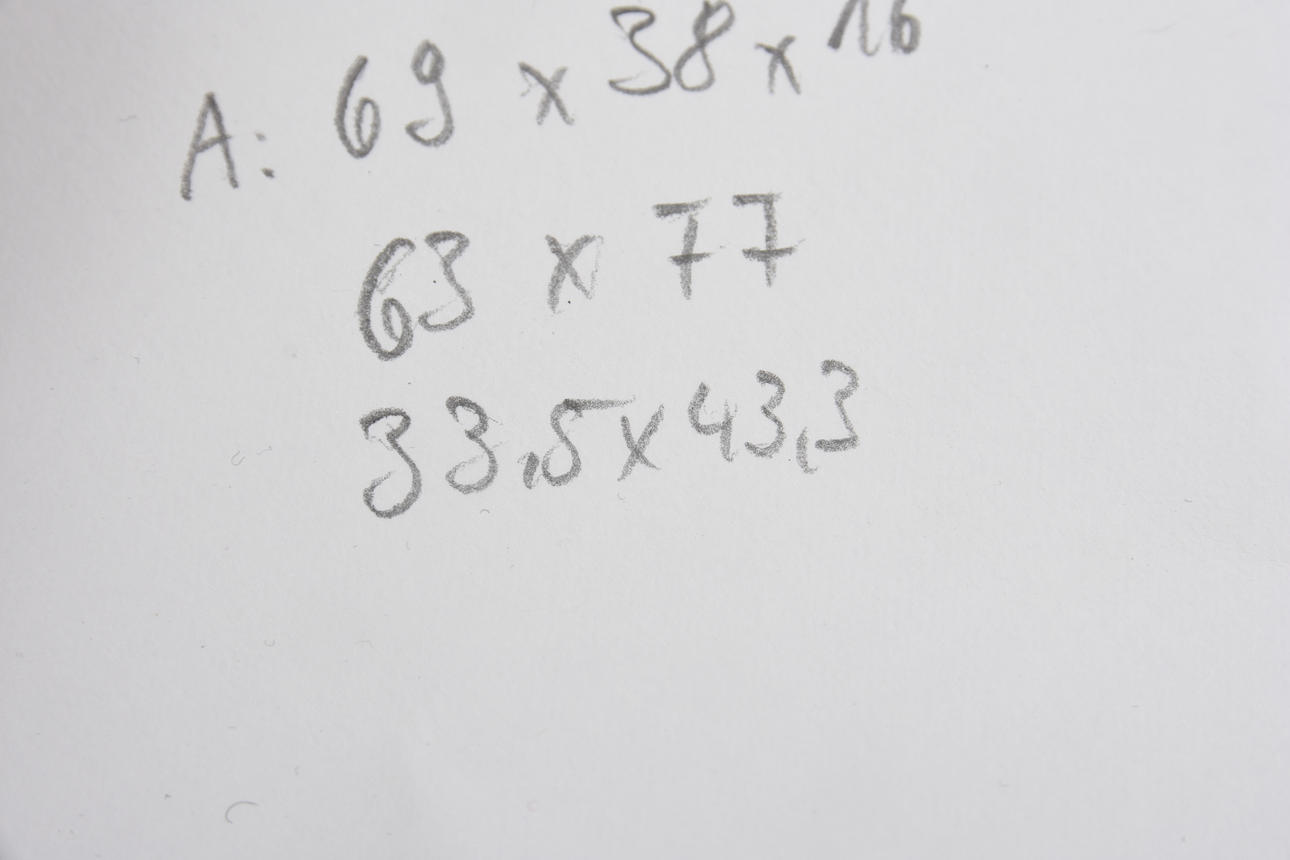 A: 69 x 38 x 16
63 x 77
33,5 x 43,3